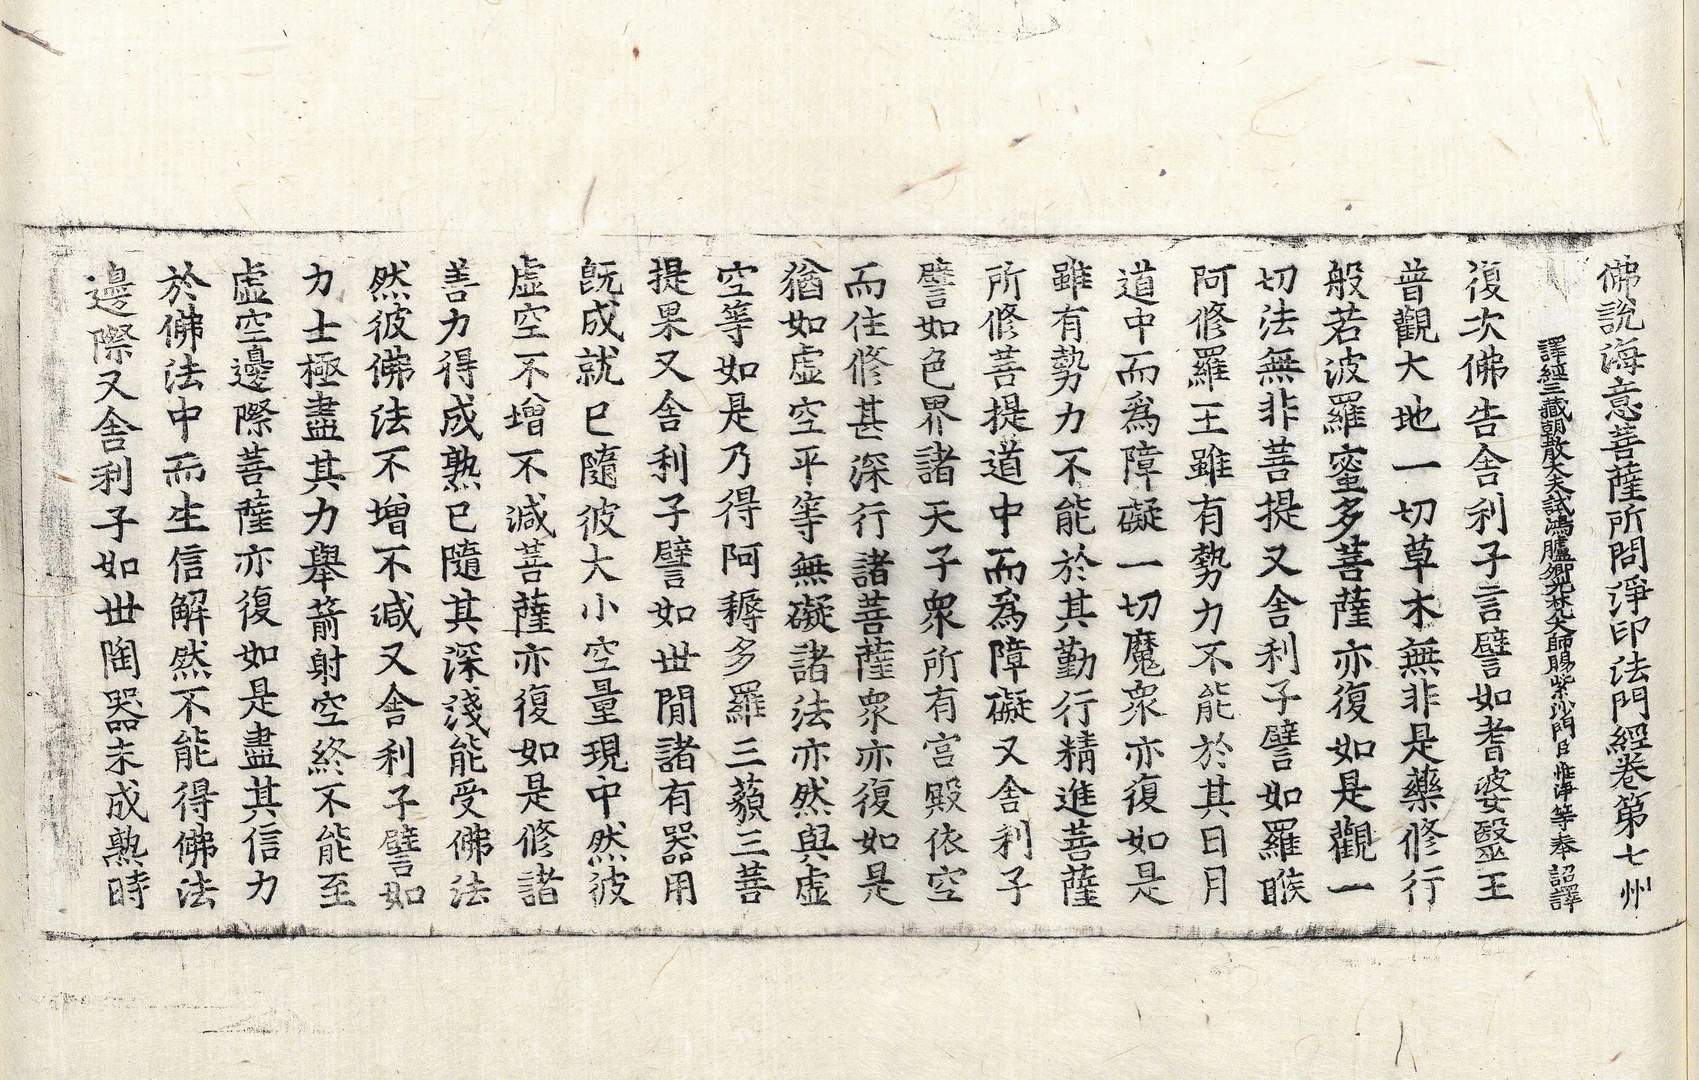 佛說海意菩薩所問淨印法門經卷第七 州
譯經三藏朝散大夫試鴻臚卿光梵大師賜紫沙門臣惟淨等奉 詔譯
復次佛告舍利子言譬如耆婆醫王
普觀大地一切草木無非是藥修行
般若波羅蜜多菩薩亦復如是觀一
切法無非菩提又舍利子譬如羅睺
阿修羅王雖有勢力不能於其日月
道中而爲障礙一切魔衆亦復如是
雖有勢力不能於其勤行精進菩薩
所修菩提道中而爲障礙又舍利子
譬如色界諸天子衆所有宮殿依空
而住修甚深行諸菩薩衆亦復如是
猶如虛空平等無礙諸法亦然與虛
空等如是乃得阿耨多羅三藐三菩
提果又舍利子譬如世閒諸有器用
旣成就已隨彼大小空量現中然彼
虛空不增不減菩薩亦復如是修諸
善力得成熟已隨其深淺能受佛法
然彼佛法不增不減又舍利子譬如
力士極盡其力舉箭射空終不能至
虛空邊際菩薩亦復如是盡其信力
於佛法中而生信解然不能得佛法
邊際又舍利子如世陶器未成熟時